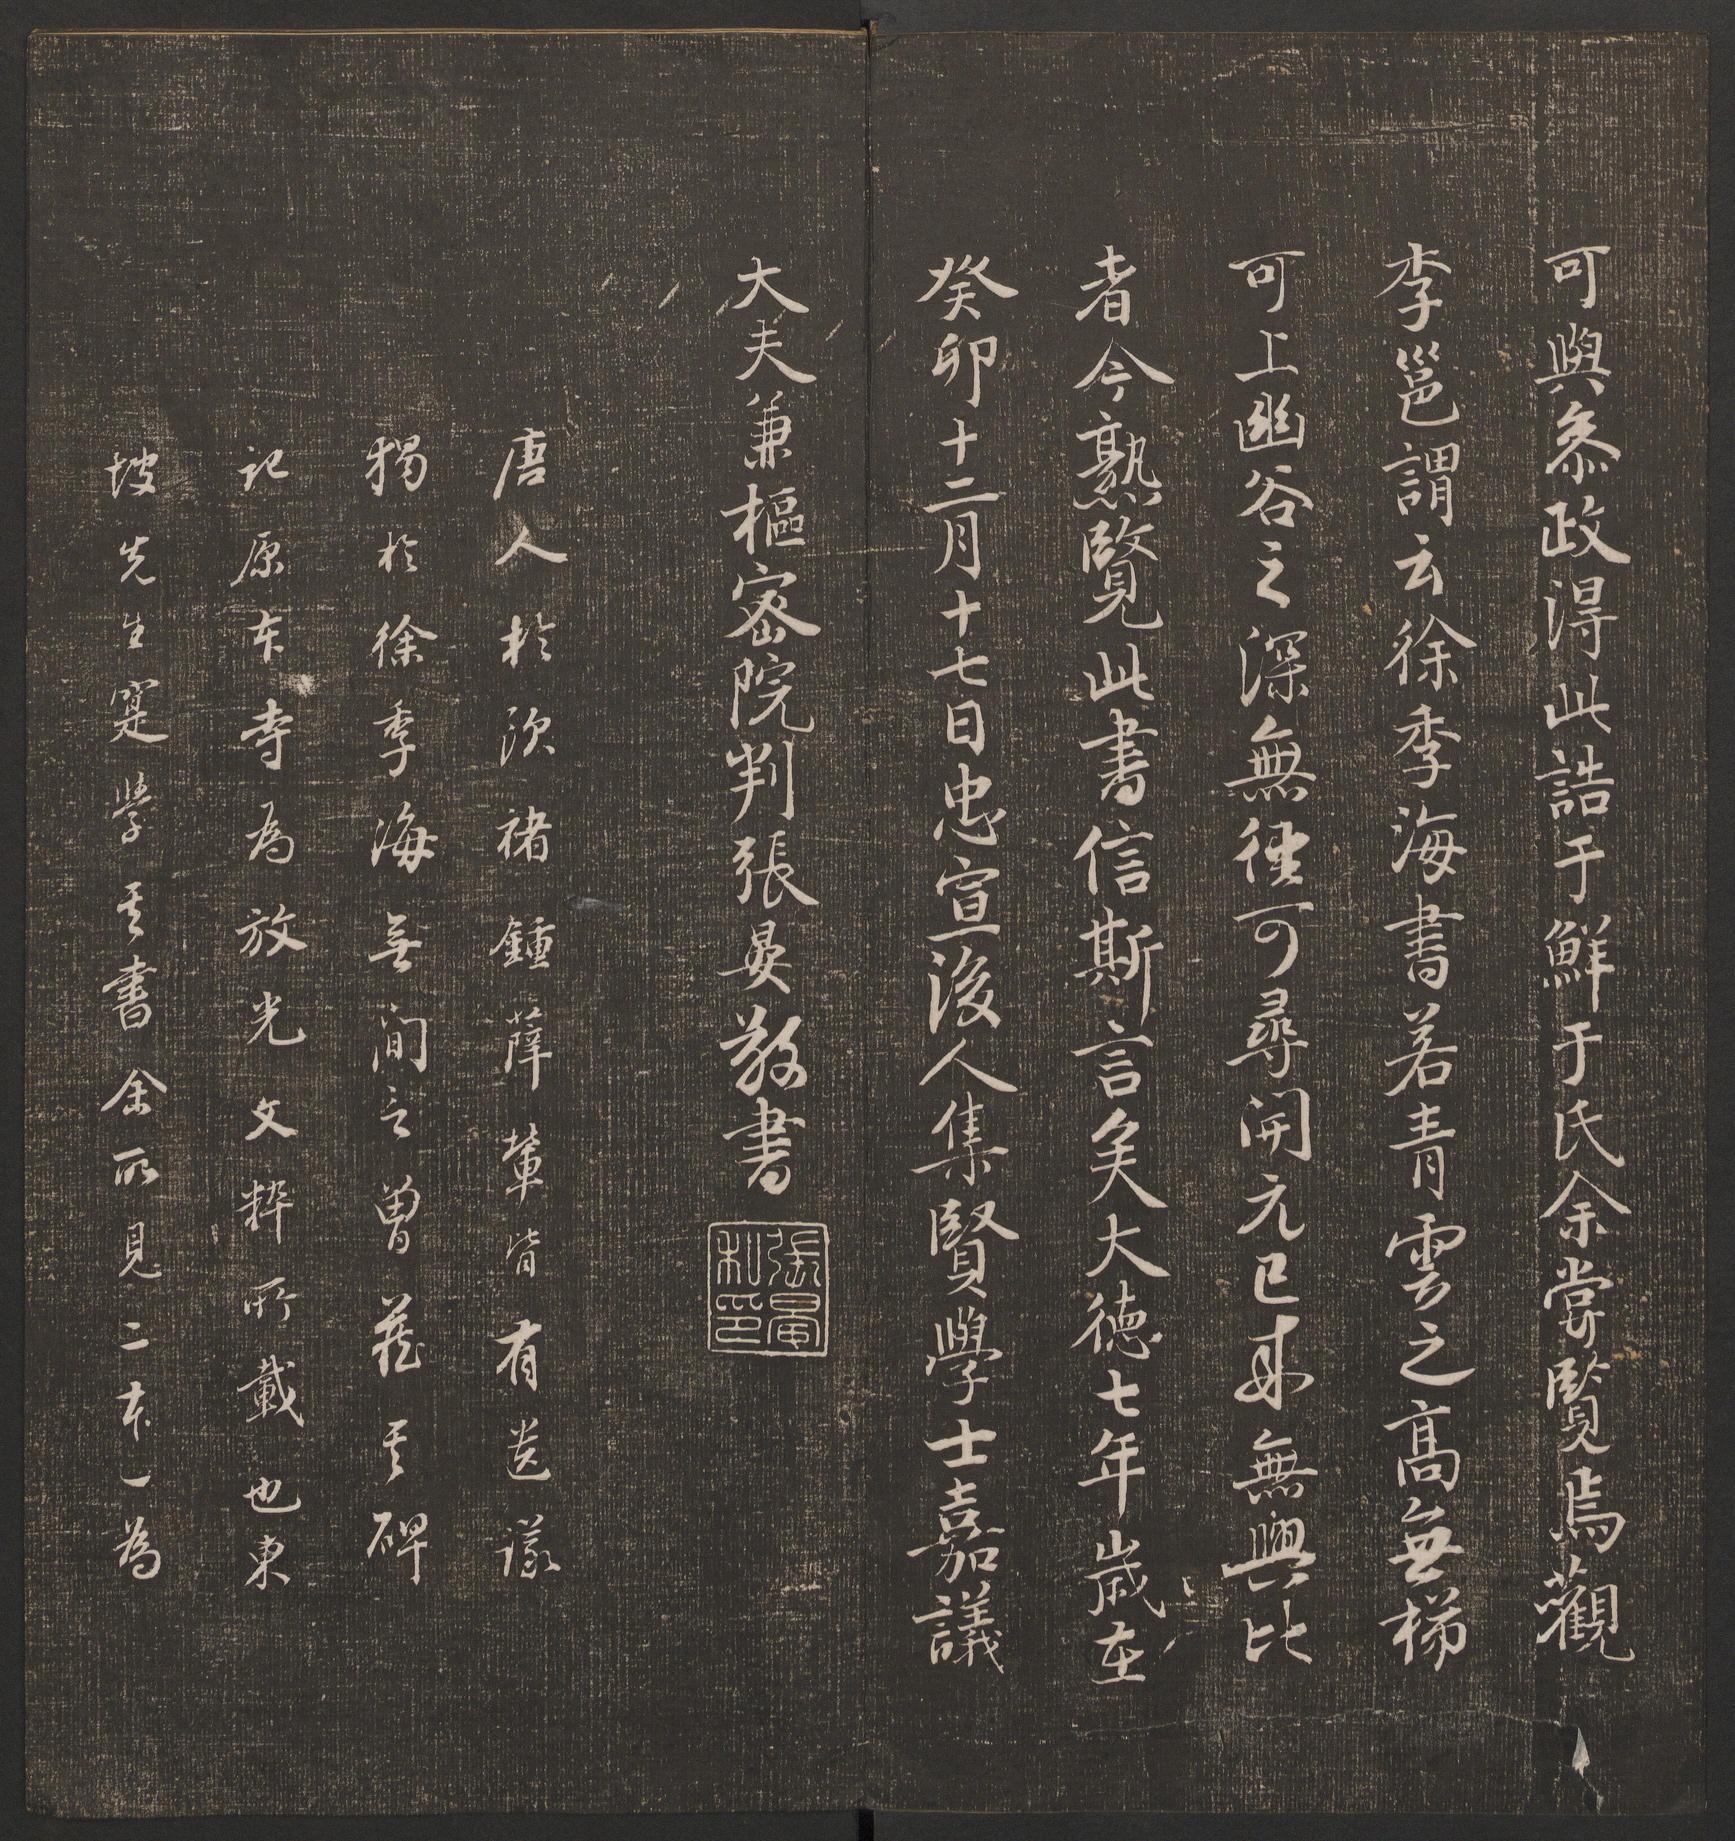 可與叅政得此誥于鮮于氏余甞覧焉觀
李邕謂云徐季海書若青雲之髙無梯
可上幽谷之深無徑可尋開元已來無與比
者今熟覧此書信斯言矣大德七年歲在
癸卯十二月十七日忠宣後人集賢學士嘉議
大夫兼樞密院判張晏敬書
張晏私印
唐人於欧褚鍾薛輩皆有遺議
獨於徐季海無間言曽藏其碑
記原本寺為放光文粹所載也東
坡先生寔學其書余所見二本一為